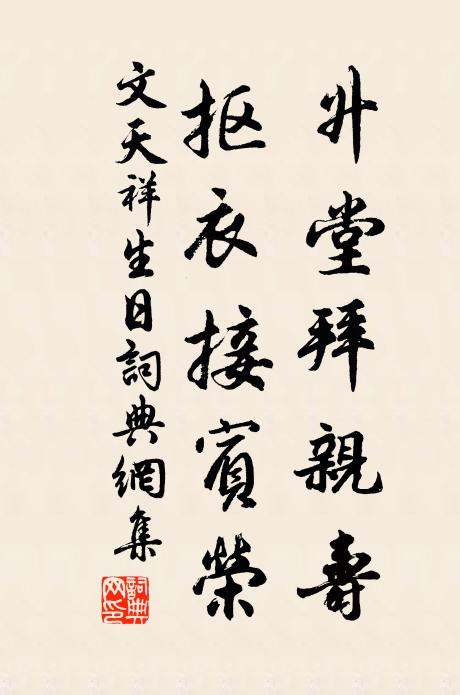 升堂拜親壽
抠衣接賓榮
文天祥生日詞典網集
詞典網印